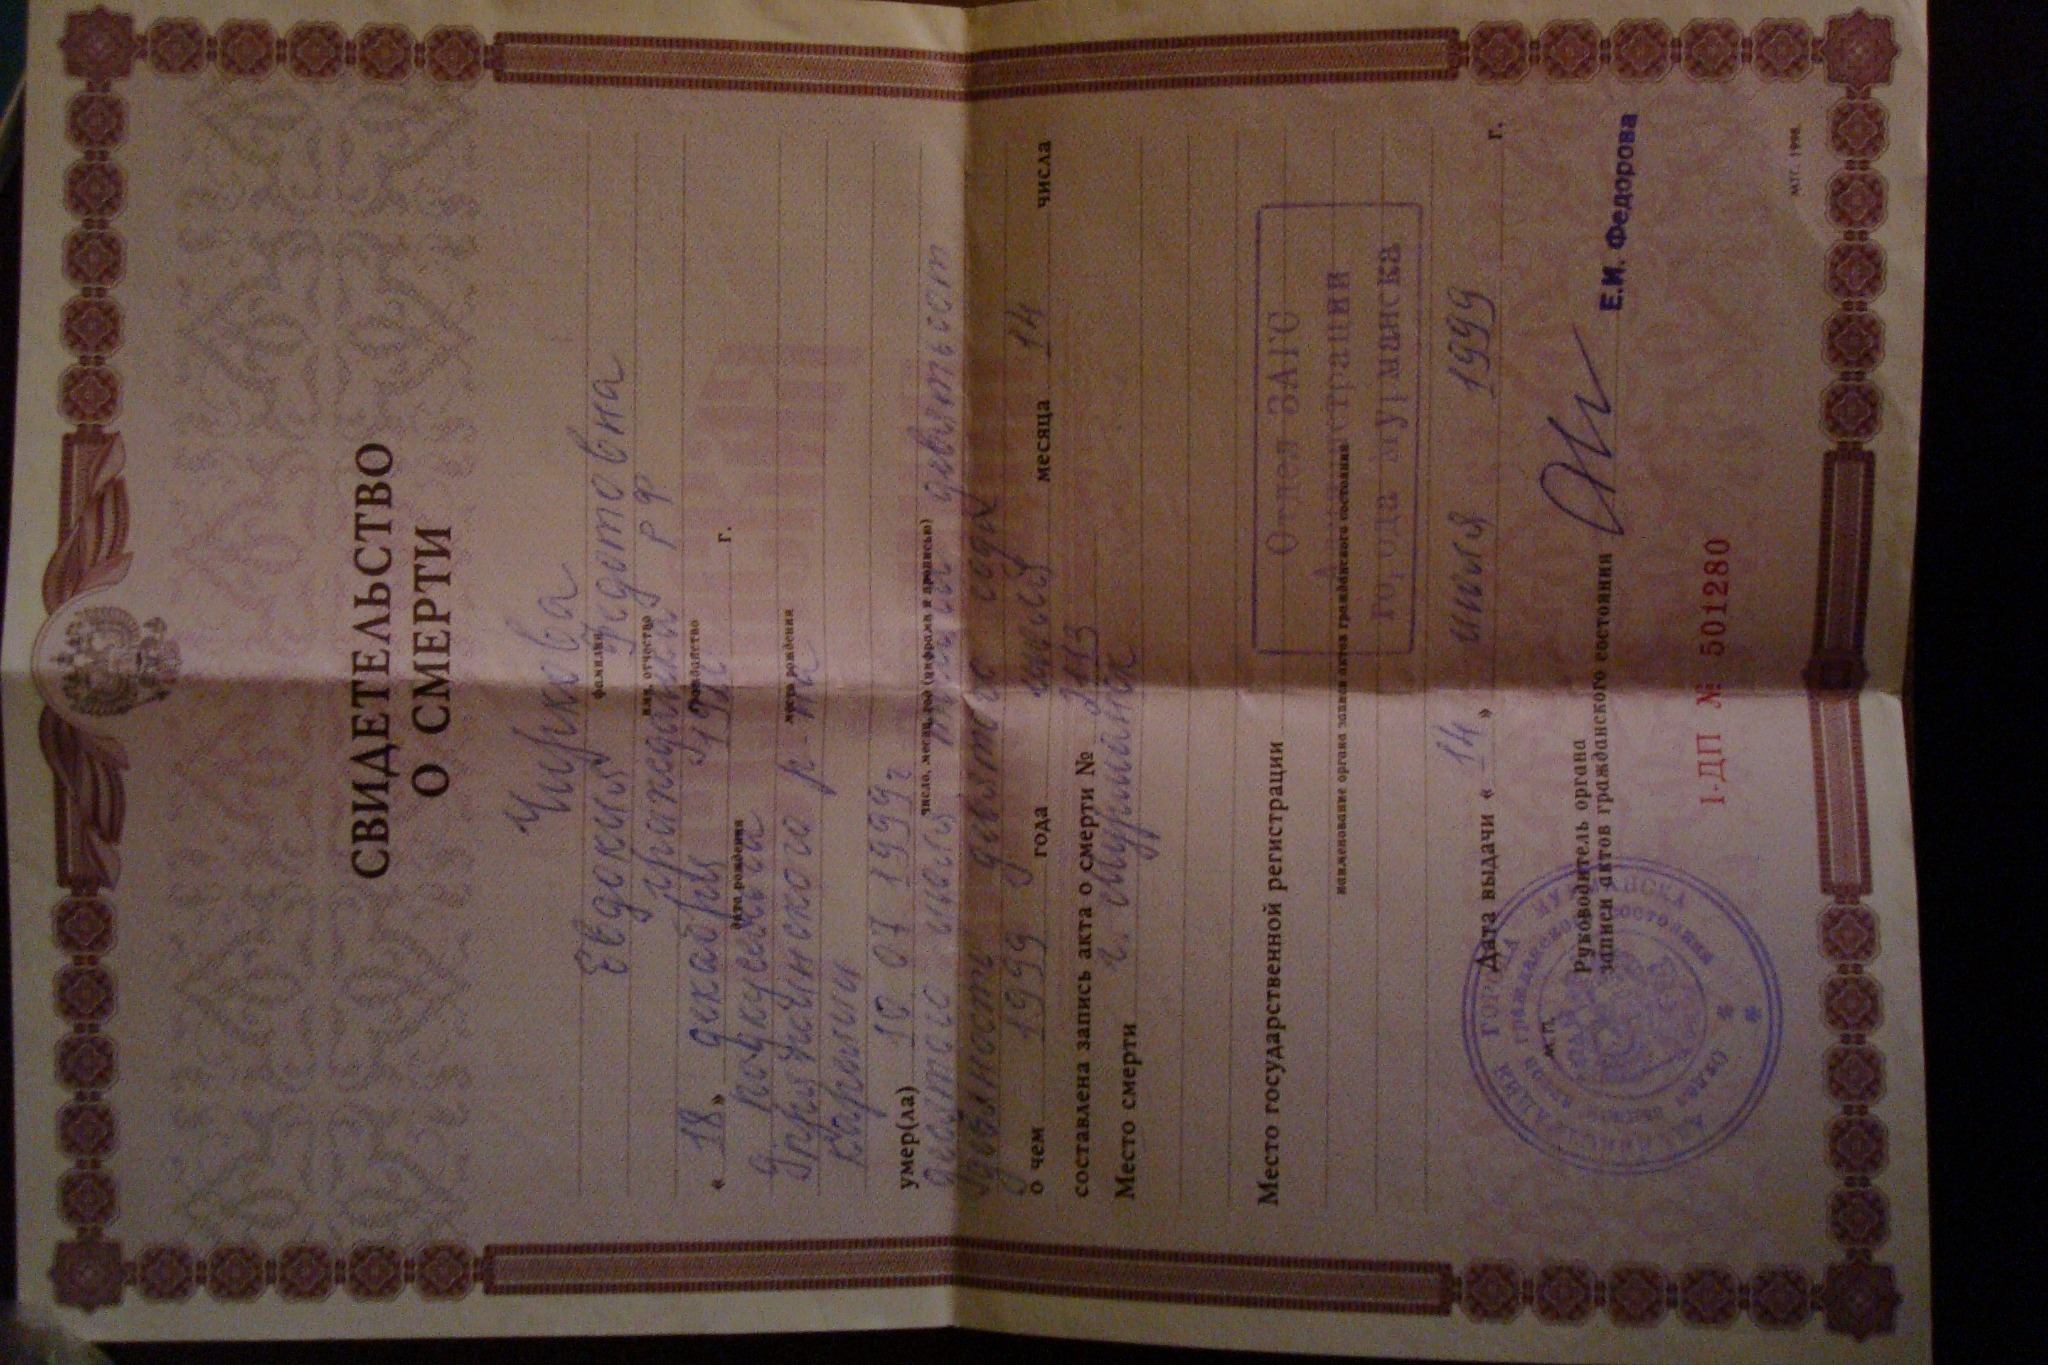 СВИДЕТЕЛЬСТВО
О СМЕРТИ
Чиркова
фамилия
Евдокия Федотовна
имя, отчество
гражданка РФ
гражданство
« 18 » декабря г.
дата рождения
д.
место рождения
Пряжинского р-на
Карелии
умер(ла) 10.07 1999г
число, месяц, год (цифрами и прописью)
десятого июля тысяча девятьсот
девяносто девятого года
о чем 1999 года июля месяца 14 числа
составлена запись акта о смерти № 2113
Место смерти г. Мурманск
Место государственной регистрации
Отдел ЗАГС
Администрации
наименование органа записи актов гражданского состояния
города Мурманска
Дата выдачи « 14 » июля 1999 г.
М.П.
Руководитель органа
записи актов гражданского состояния
Е.И. Федорова
I-ДП № 501280
МТГ. 1998.